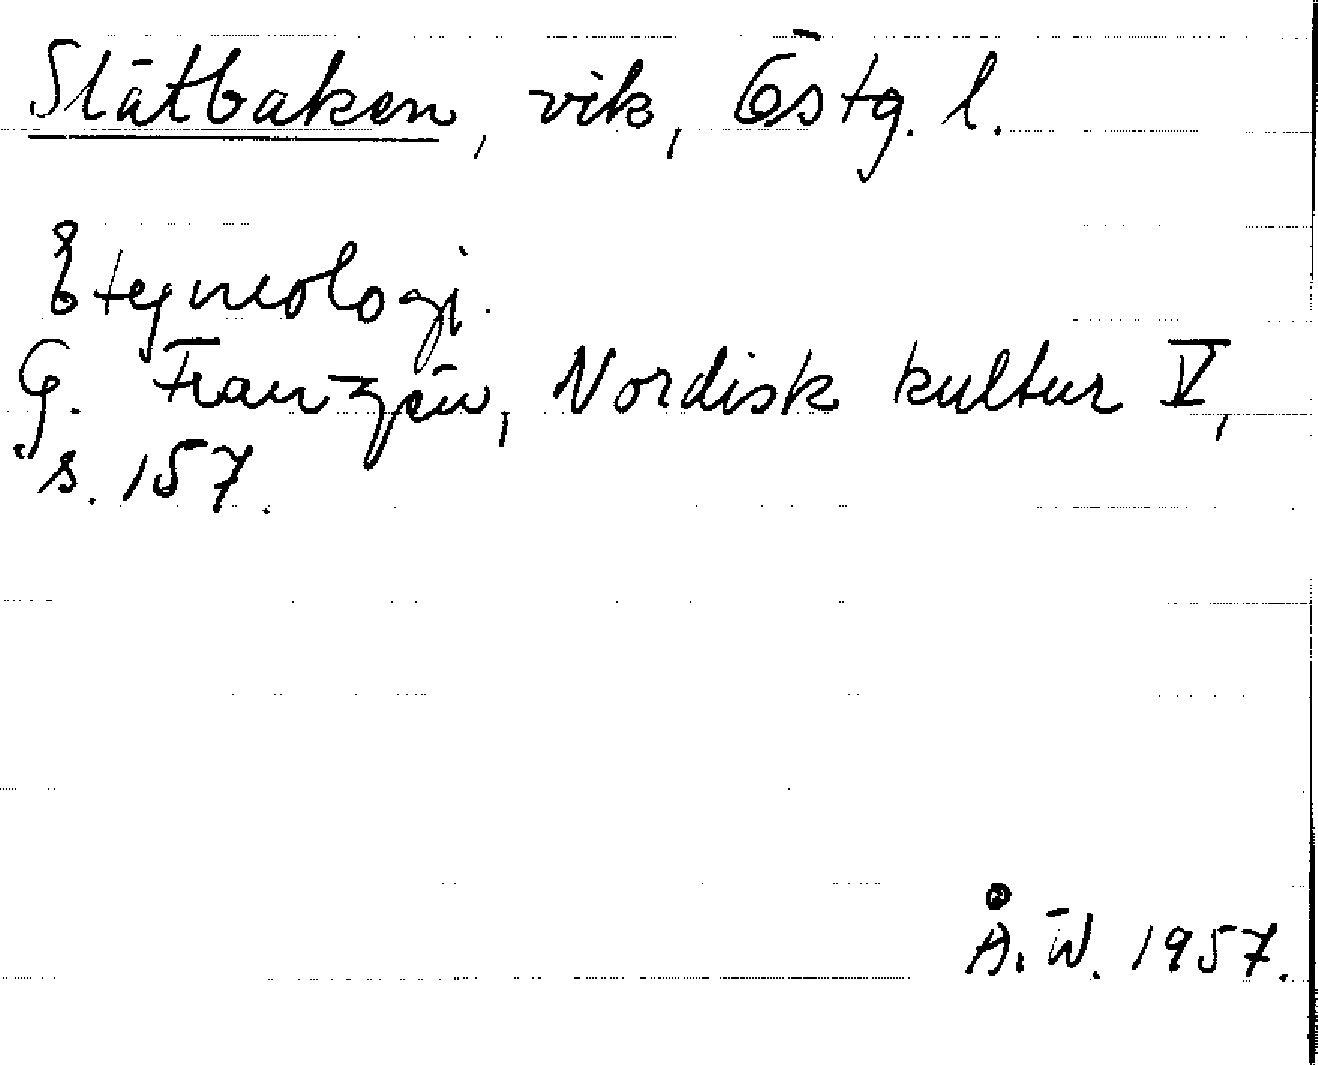 Slätbaken, vik, Östg. l.
Etymologi.
G. Franzén, Nordisk kultur V,
s. 157.
Å. W. 1957.